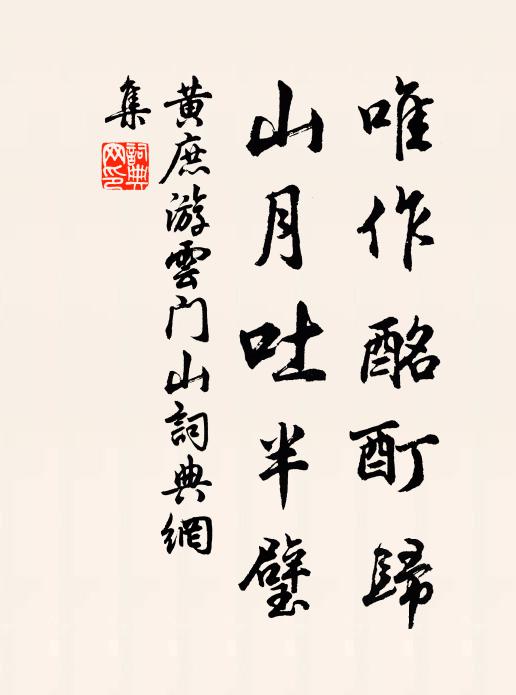 唯作酩酊歸
山月吐半璧
黃庶游雲門山詞典網
集
詞典網印